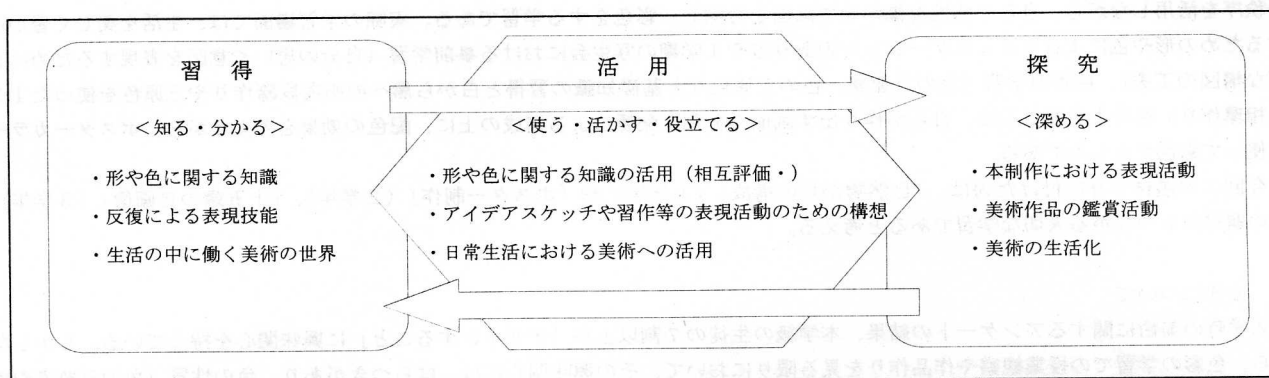 習 得
<知る・分かる>
・形や色に関する知識
・反復による表現技能
・生活の中に働く美術の世界
活 用
<使う・活かす・役立てる>
・形や色に関する知識の活用（相互評価・）
・アイデアスケッチや習作等の表現活動のための構想
・日常生活における美術への活用
探 究
<深める>
・本制作における表現活動
・美術作品の鑑賞活動
・美術の生活化